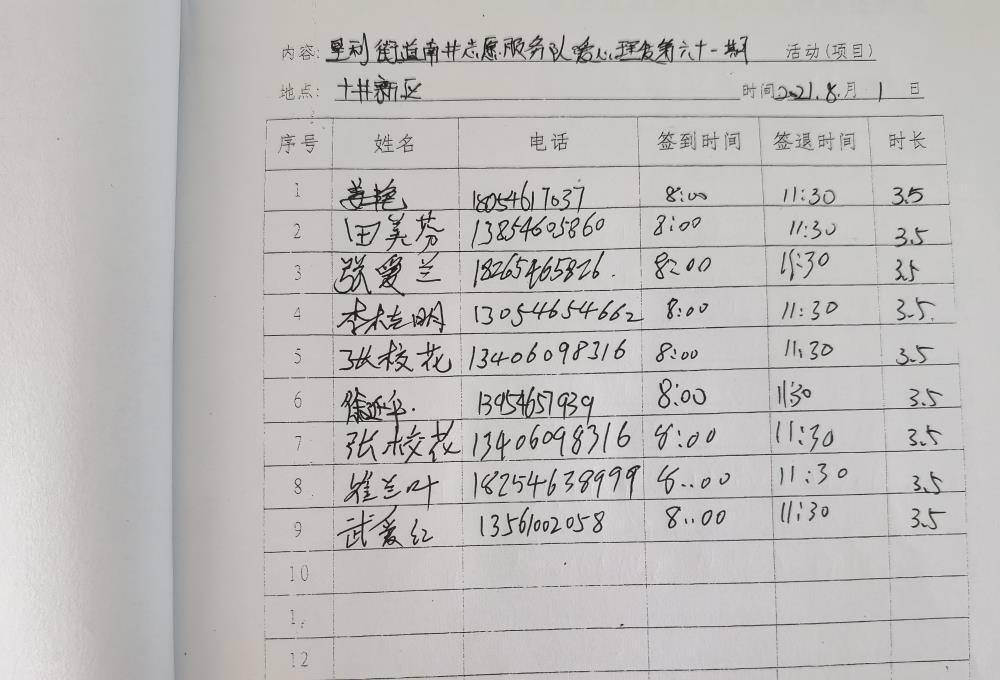 内容: 垦利街道南井志愿服务队爱心理发第六十一期 活动(项目)
地点: 十井新区 时间2021.8月1日
序号 姓名 电话 签到时间 签退时间 时长
1 姜艳 18054617037 8:00 11:30 3.5
2 田美芬 13854605860 8:00 11:30 3.5
3 张爱兰 18265465826. 8:00 11:30 3.5
4 李桂明 13054654662 8:00 11:30 3.5.
5 张校花 13406098316 8:00 11:30 3.5
6 徐延华. 13954657939 8:00 11:30 3.5
7 张校花 13406098316 8:00 11:30 3.5
8 崔兰叶 18254638999 8:00 11:30 3.5
9 武爱红 13561002058 8:00 11:30 3.5
10
1
12